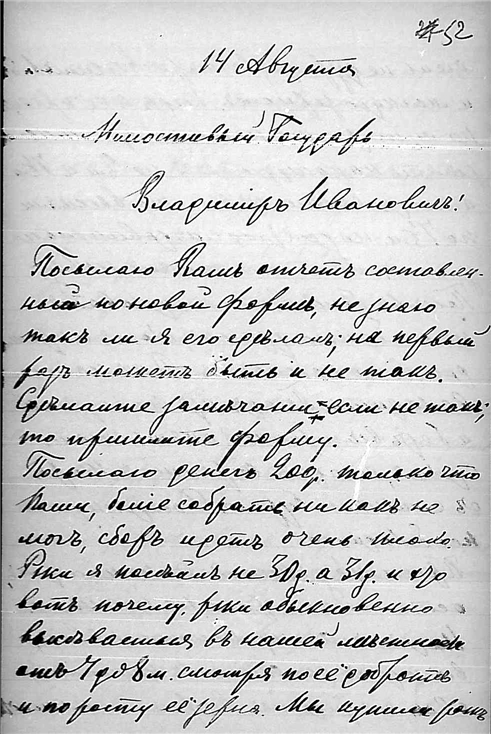 52
14 Августа
Милостивый Государь
Владимиръ Ивановичъ!
Посылаю Вамъ отчетъ составлен-
ный по новой формѣ, не знаю
такъ ли я его сдѣлалъ; на первый
разъ можетъ быть и не такъ.
Сдѣлайте замѣчание если не такъ;
то пришлите форму.
Посылаю денегъ 200р. только что
Ваши, более собрать ни какъ не
могъ, сборъ идетъ очень плохо.
Ржи я посѣялъ не 30д. а 31д. и
вотъ почему ржи обыкновенно
высѣвается въ нашей мѣстности
отъ 7 до 8 м. смотря по её добротѣ
и по росту её зерна. Мы купили рожь